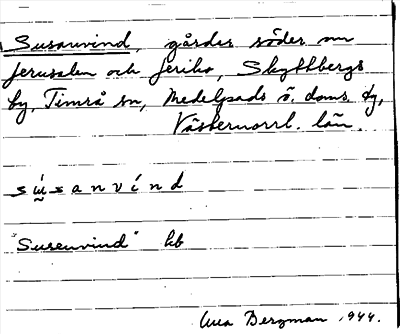 Susanvind, gårdar söder om
Jerusalem och Jeriko, Skyttbergs
by, Timrå sn, Medelpads ö. doms. dg,
Västernorrl. län.
súsanvínd
"Susenvind" kb
Eva Bergman 1944.